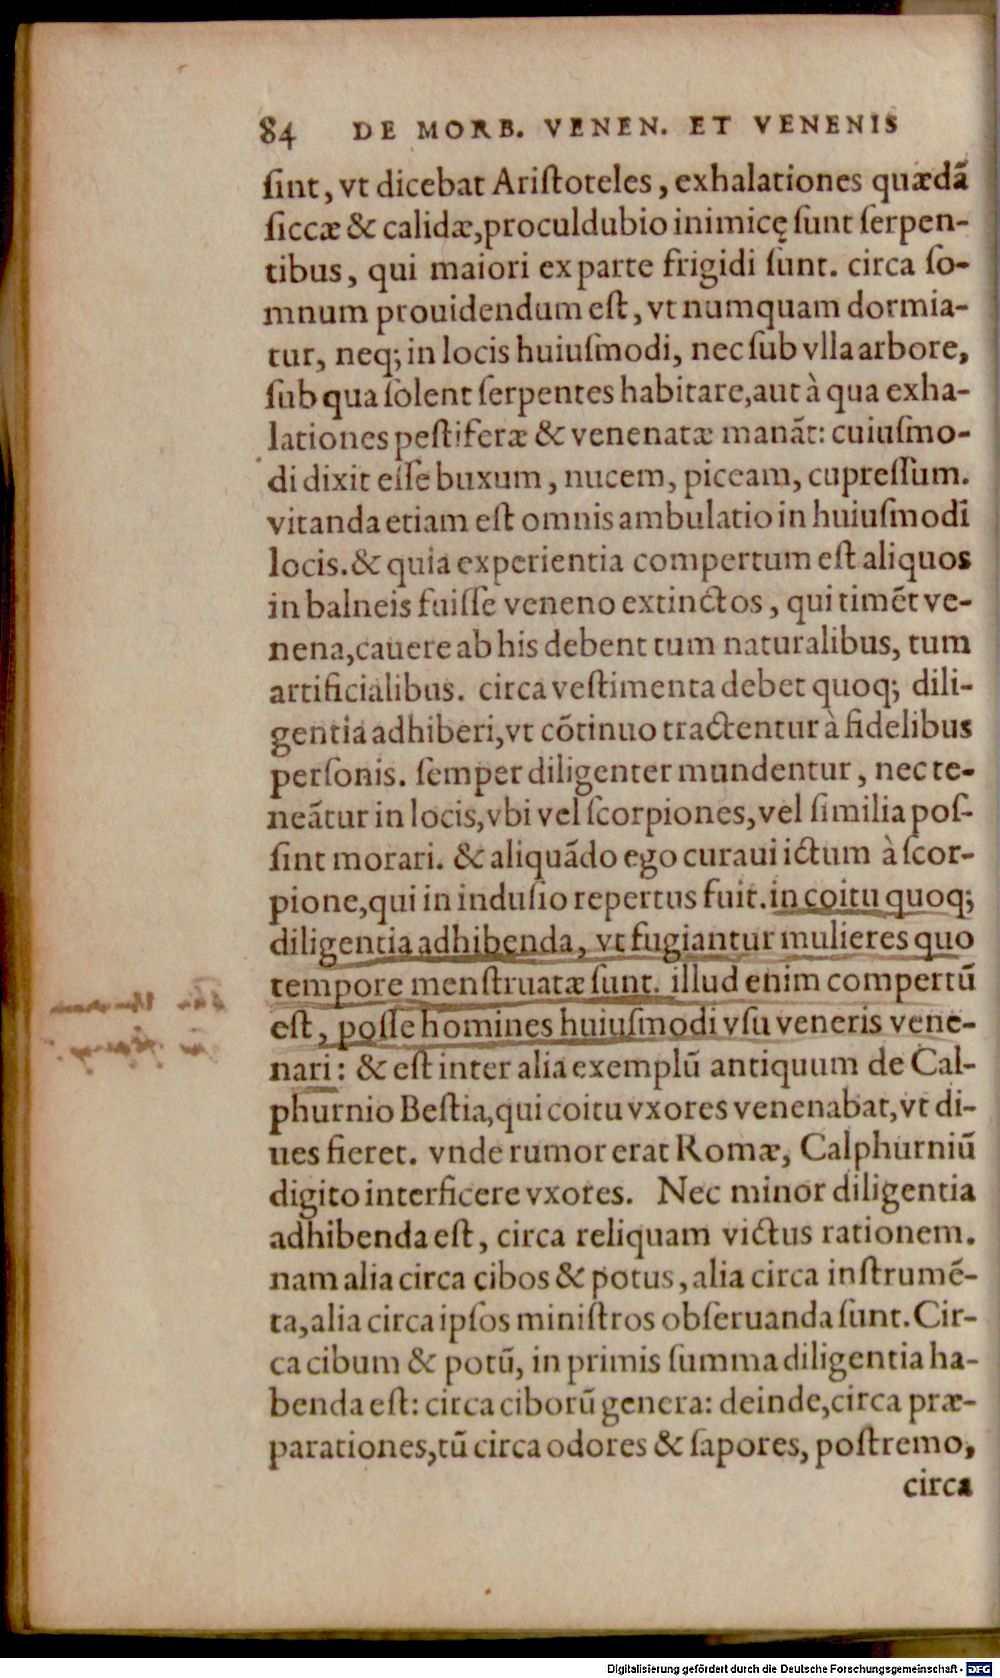 84 DE MORB. VENEN. ET VENENIS
ſint, vt dicebat Ariſtoteles, exhalationes quædã
ſiccæ & calidæ, proculdubio inimicę ſunt ſerpen-
tibus, qui maiori ex parte frigidi ſunt. circa ſo-
mnum prouidendum eſt, vt numquam dormia-
tur, neq; in locis huiuſmodi, nec ſub vlla arbore,
ſub qua ſolent ſerpentes habitare, aut à qua exha-
lationes peſtiferæ & venenatæ manãt: cuiuſmo-
di dixit eſſe buxum, nucem, piceam, cupreſſum.
vitanda etiam eſt omnis ambulatio in huiuſmodi
locis. & quia experientia compertum eſt aliquos
in balneis fuiſſe veneno extinctos, qui timẽt ve-
nena, cauere ab his debent tum naturalibus, tum
artificialibus. circa veſtimenta debet quoq; dili-
gentia adhiberi, vt cõtinuo tractentur à fidelibus
perſonis. ſemper diligenter mundentur, nec te-
neãtur in locis, vbi vel ſcorpiones, vel ſimilia poſ-
ſint morari. & aliquãdo ego curaui ictum à ſcor-
pione, qui in induſio repertus fuit. in coitu quoq;
diligentia adhibenda, vt fugiantur mulieres quo
tempore menſtruatæ ſunt. illud enim compertũ
eſt, poſſe homines huiuſmodi vſu veneris vene-
nari: & eſt inter alia exemplũ antiquum de Cal-
phurnio Beſtia, qui coitu vxores venenabat, vt di-
ues fieret. vnde rumor erat Romæ, Calphurniũ
digito interficere vxores. Nec minor diligentia
adhibenda eſt, circa reliquam victus rationem.
nam alia circa cibos & potus, alia circa inſtrumẽ-
ta, alia circa ipſos miniſtros obſeruanda ſunt. Cir-
ca cibum & potũ, in primis ſumma diligentia ha-
benda eſt: circa ciborũ genera: deinde, circa præ-
parationes, tũ circa odores & ſapores, poſtremo,
circa
Digitalisierung gefördert durch die Deutsche Forschungsgemeinschaft - DFG